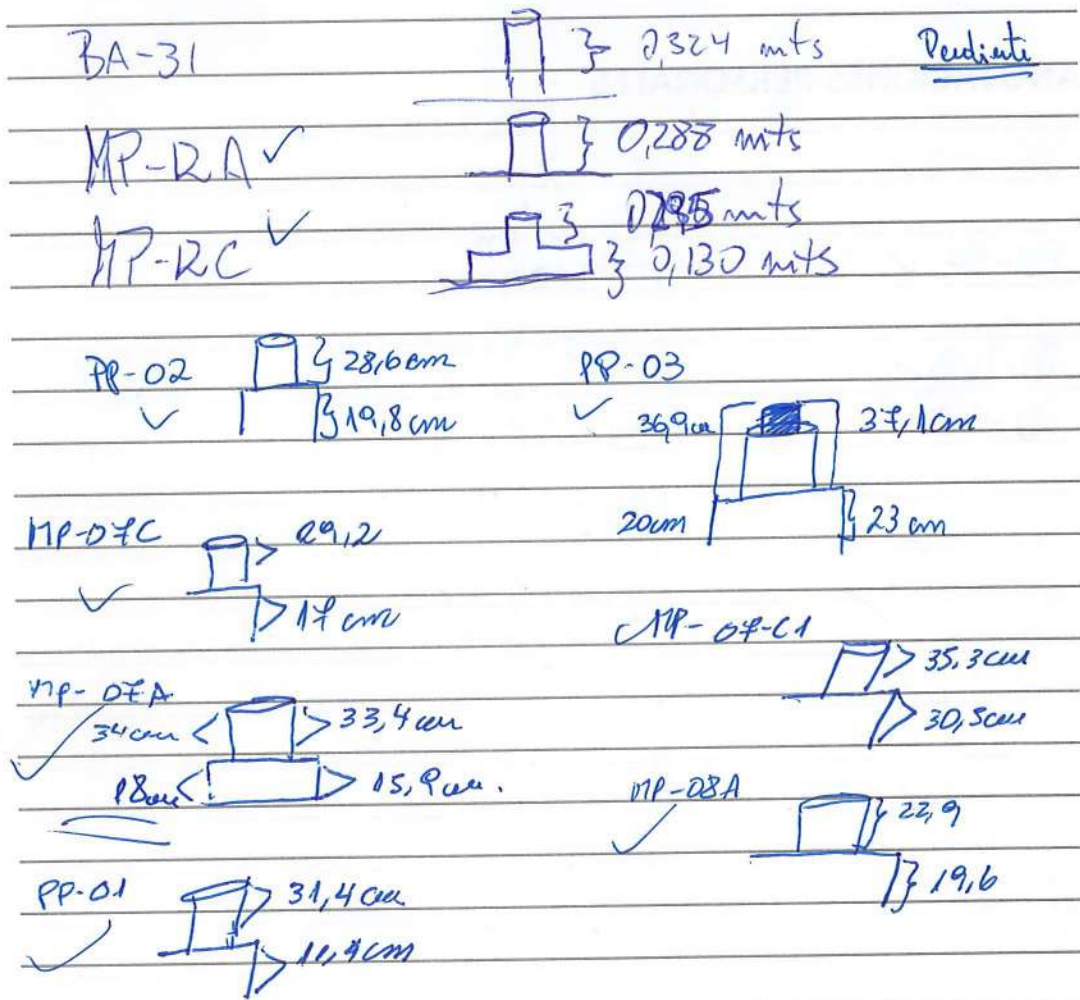 BA-31 0,324 mts Pendiente
MP-RA ✓ 0,288 mts
MP-RC ✓ mts
0,130 mts
PP-02 28,6 cm
✓ 19,8 cm
PP-03
✓ 36,9 cm 37,1 cm
20 cm 23 cm
MP-07C 29,2
✓ 17 cm
MP-07-C1
35,3 cm
30,5 cm
MP-07A
34 cm 33,4 cm
18 cm 15,9 cm.
MP-08A 22,9
✓ 19,6
PP-01 31,4 cm
✓ cm